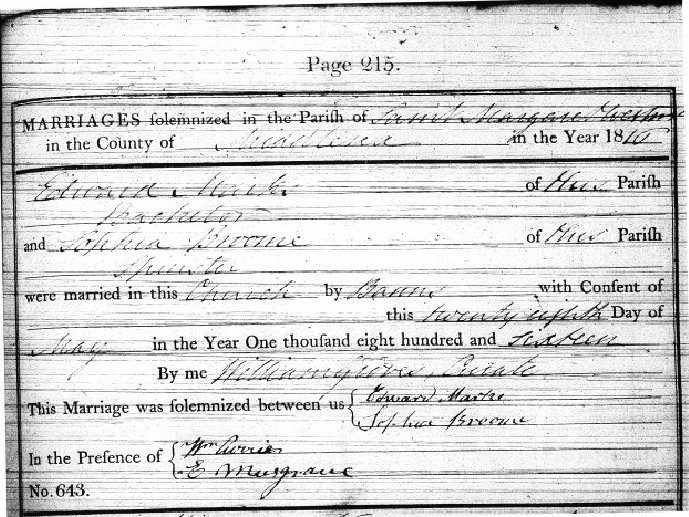 Page 215.
MARRIAGES solemnized in the Parish of Saint Margaret Westmr
in the County of Middlesex in the Year 1816
Edward Marks of this Parish
Bachelor
and Sophia Broome of this Parish
Spinster
were married in this Church by Banns with Consent of
this twenty eighth Day of
May in the Year One thousand eight hundred and sixteen
By me William Groves Curate
This Marriage was solemnized between us Edward Marks
Sophia Broome
In the Presence of Wm Currier
E Musgrave
No. 643.